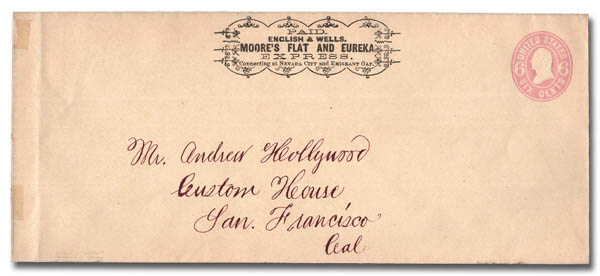 PAID.
ENGLISH & WELLS.
MOORE'S FLAT AND EUREKA
EXPRESS.
Connecting at NEVADA CITY and EMIGRANT GAP.
UNITED STATES
6 6
SIX CENTS
Mr. Andrew Hollywood
Custom House
San. Francisco
Cal